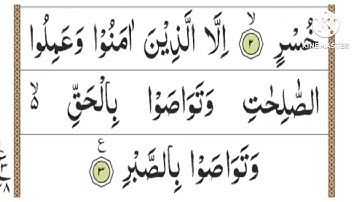 خُسْرٍ ۙ ﴿۲﴾ اِلَّا الَّذِيْنَ اٰمَنُوْا وَعَمِلُوا
الصّٰلِحٰتِ وَتَوَاصَوْا بِالْحَقِّ ۙ۬
وَتَوَاصَوْا بِالصَّبْرِ ﴿۳﴾ ع
KINEMASTER